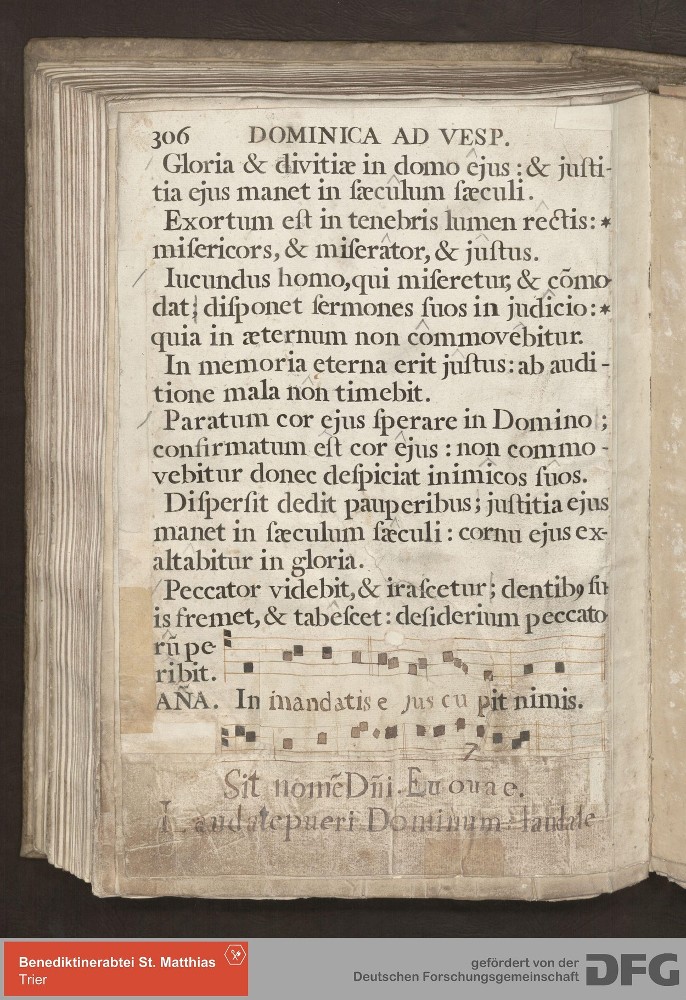 306 DOMINICA AD VESP.
Gloria & divitiæ in domo êjus : & juſti-
tia ejus manet in ſæcûlum ſæculi .
Exortum eſt in tenebris lumen rectis: *
miſericors, & miſerâtor, & jûſtus.
Iucundus homo, qui miſeretur, & cõmo
dat; diſponet ſermones ſuos in judîcio: *
quia in æternum non commovêbitur.
In memoria eterna erit jûſtus: ab audi-
tione mala nôn timebit.
Paratum cor ejus ſperare in Domino ;
confirmatum eſt cor êjus : non commo-
vebitur donec deſpiciat inimîcos ſuos.
Diſperſit dedit pauperibus; juſtitia ejus
manet in ſæculum ſæculi : cornu ejus ex-
altabitur in gloria.
Peccator videbit, & iraſcetur; dentibꝰ ſu
is fremet, & tabeſcet: deſiderium peccato
rũ pe
ribit.
AÑA. In mandatis e jus cu pit nimis.
Sit nomẽ Dñi. Eu ouae.
Laudate pueri Dominum: laudate
Benediktinerabtei St. Matthias
Trier
gefördert von der
Deutschen Forschungsgemeinschaft DFG